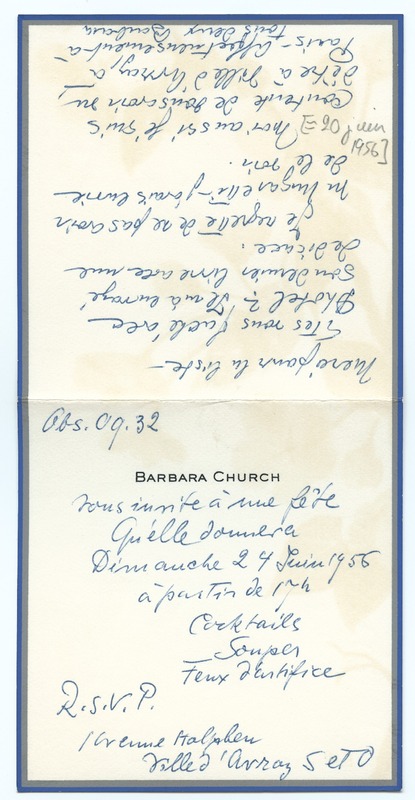 Merci pour la liste –
Êtes vous fâché avec
Dhotel ? – Il m'a envoyé
son dernier livre avec une
dédicace.
Je regrette de ne pas avoir
vu Ungaretti – j'avais envie
de le voir.
Moi aussi je suis
contente de vous savoir
d'être à Ville d'Avray, à
Paris – affectueusement à
tous deux Barbara
[= 20 juin
1956]
Abs. 09.32
BARBARA CHURCH
vous invite à une fête
Qu'elle donnera
Dimanche 24 Juin 1956
à partir de 17h
Cocktails
Souper
Feux d'artifice
R.S.V.P.
1 Avenue Halphen
Ville d'Avray S et O